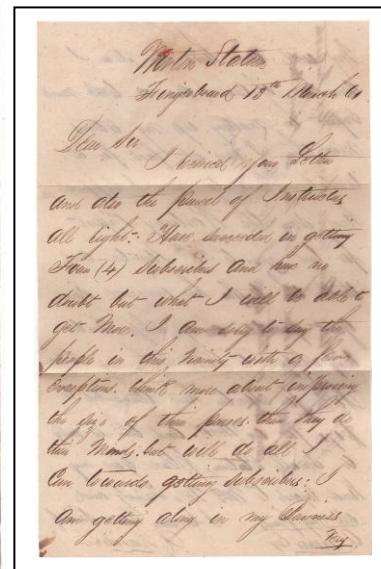 Station
Fingerboard 13th March 61
Dear Sir
I received your Letter
and also the parcel of Instructors
all right. Have succeeded in getting
Four (4) Subscribers and has no
doubt but what I will be able to
get More. I am sorry to say the
people in this vicinity with a few
exceptions think more about improving
the size of their purses than they do
their Minds. but will do all I
Can towards getting Subscribers. I
Am getting along in my Business